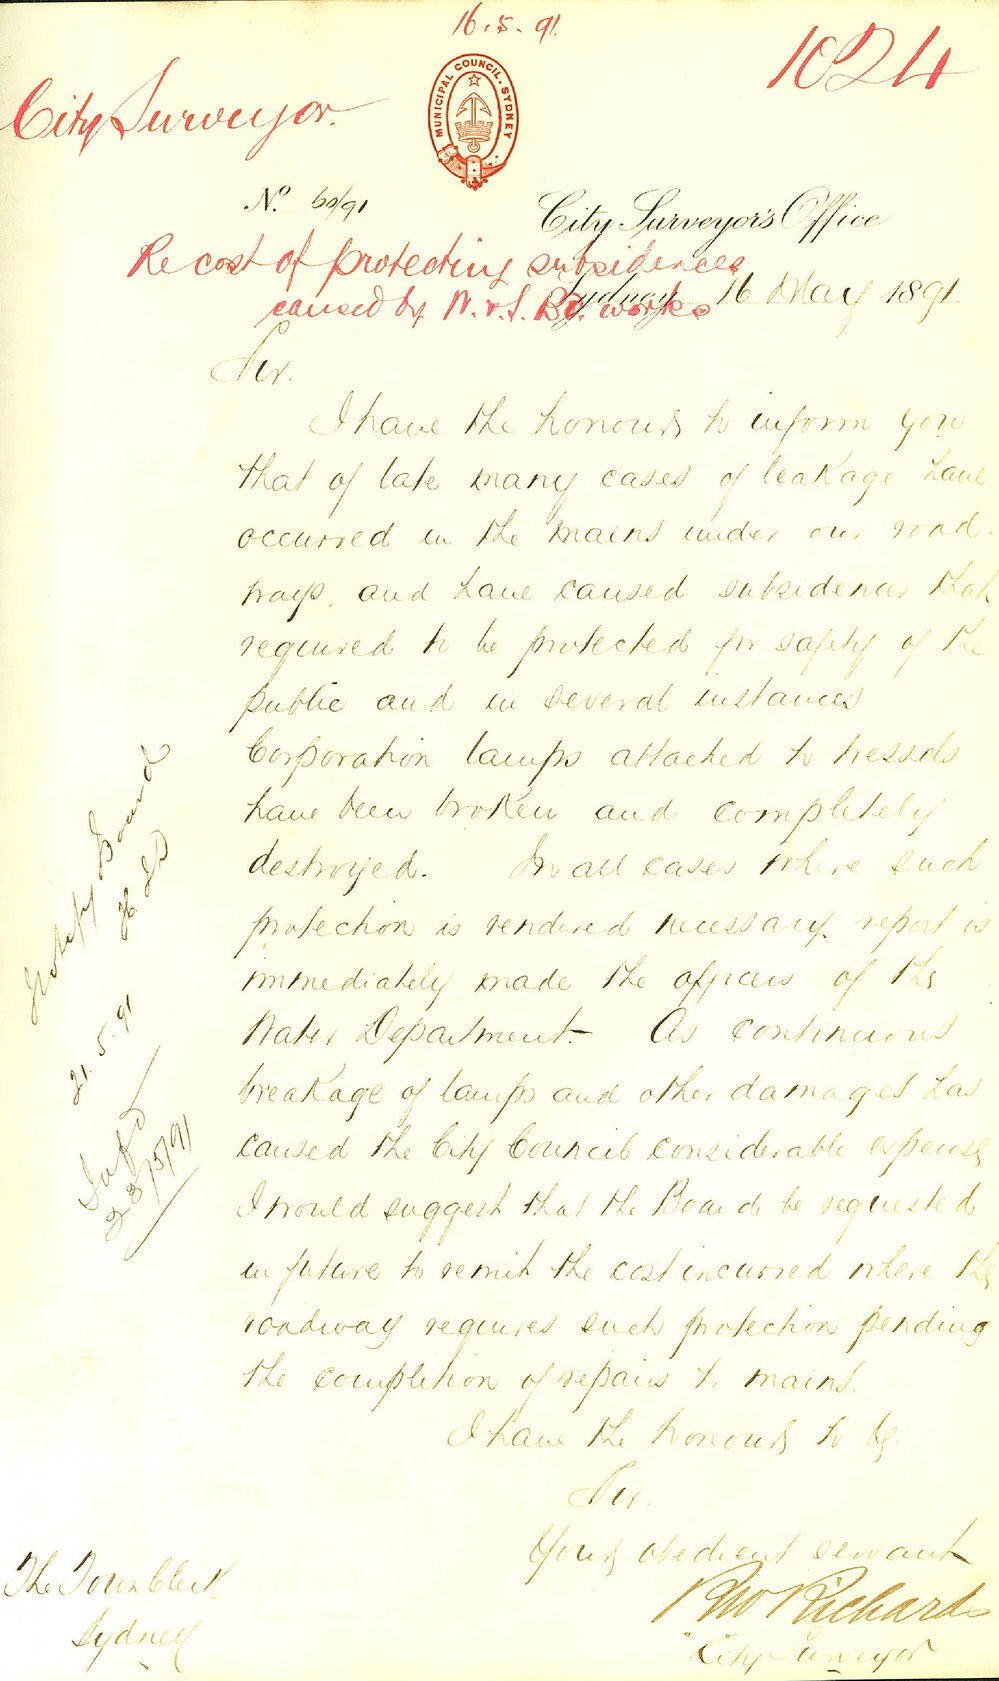 16.5.91.
1024
City Surveyor.
MUNICIPAL COUNCIL. SYDNEY
No. 60/91
City Surveyor's Office
Re cost of protecting subsidences
Sydney 16 May 1891
caused by W. & S. Bd. works
Sir.
I have the honour to inform you
that of late many cases of leakage have
occurred in the mains under our road-
ways, and have caused subsidences that
required to be protected for safety of the
public and in several instances
Corporation lamps attached to tressels
have been broken and completely
destroyed. In all cases where such
protection is rendered necessary report is
immediately made the officers of the
Water Department. As continuous
breakage of lamps and other damages has
caused the City Council considerable expense
I would suggest that the Board be requested
in future to remit the cost incurred where the
roadway requires such protection pending
the completion of repairs to mains.
I have the honour to be.
Sir.
Your obedient servant
RW Richards
City Surveyor
The Town Clerk
Sydney
Notify Board
21.5.91
23/5/91